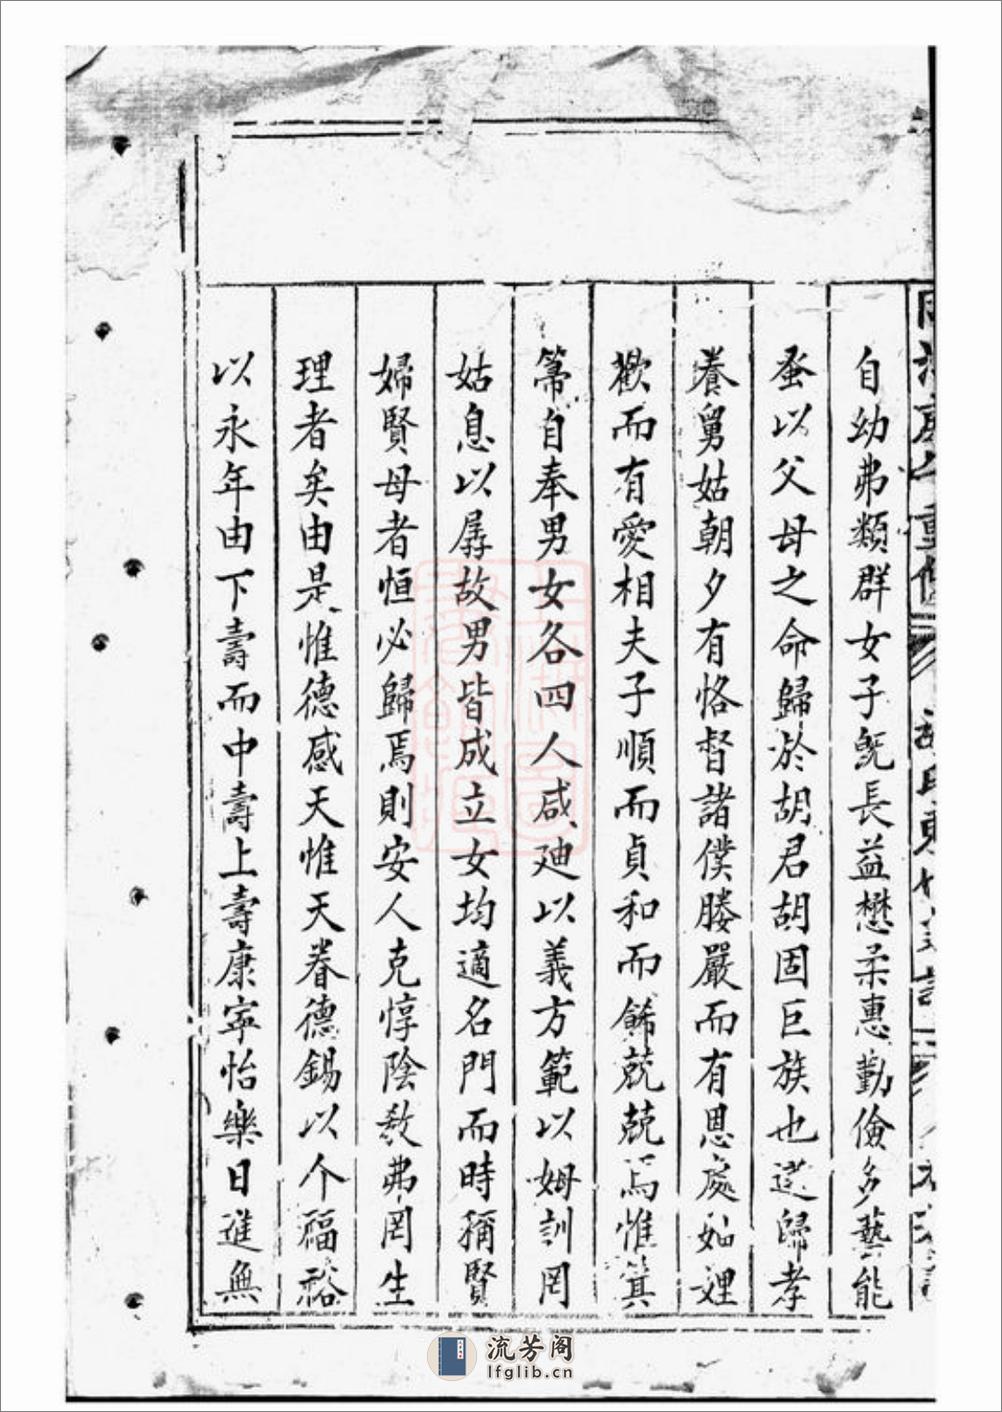 自幼弗類群女子既長益懋柔惠勤儉多藝能
蚤以父母之命歸於胡君胡固巨族也逮歸孝
養舅姑朝夕有恪督諸僕媵嚴而有恩處妯娌
歡而有愛相夫子順而貞和而餙兢兢焉惟箕
箒自奉男女各四人咸廸以義方範以姆訓罔
姑息以孱故男皆成立女均適名門而時稱賢
婦賢母者恒必歸焉則安人克惇陰教弗罔生
理者矣由是惟德感天惟天眷德錫以个福裕
以永年由下壽而中壽上壽康寧怡樂日進無
流芳阁
lfglib.cn